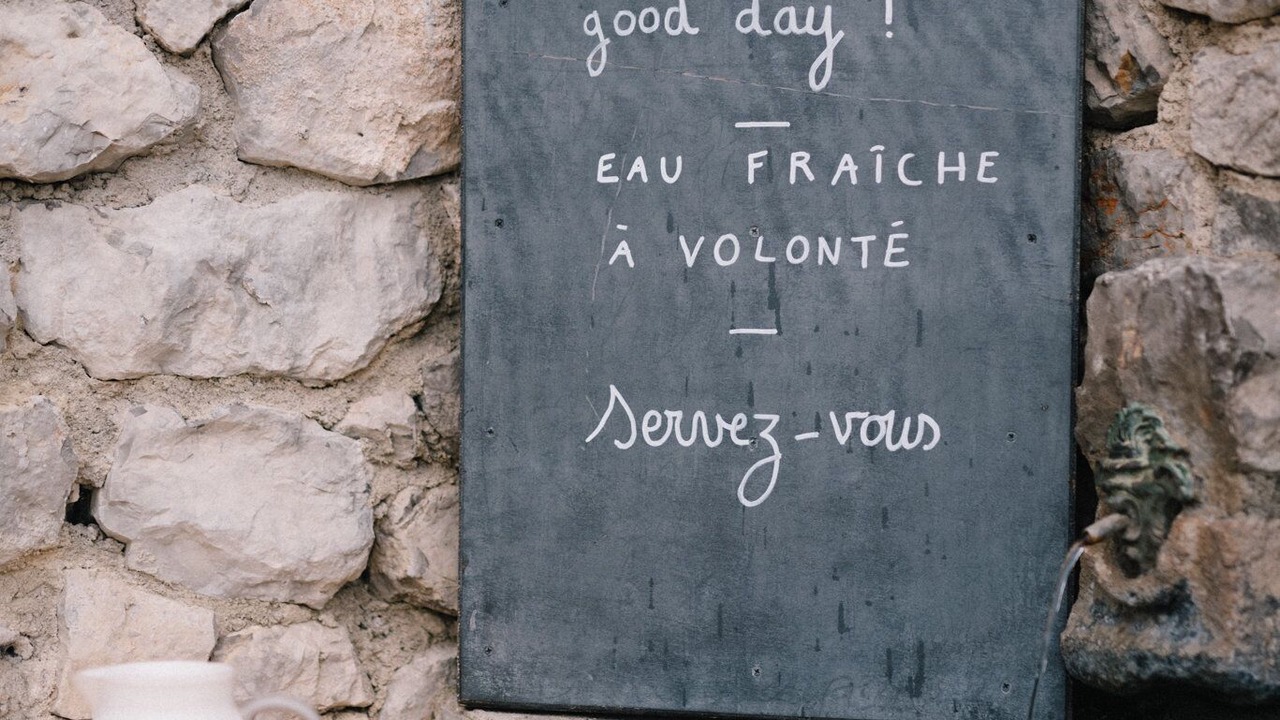 good day !
EAU FRAÎCHE
À VOLONTÉ
Servez-vous